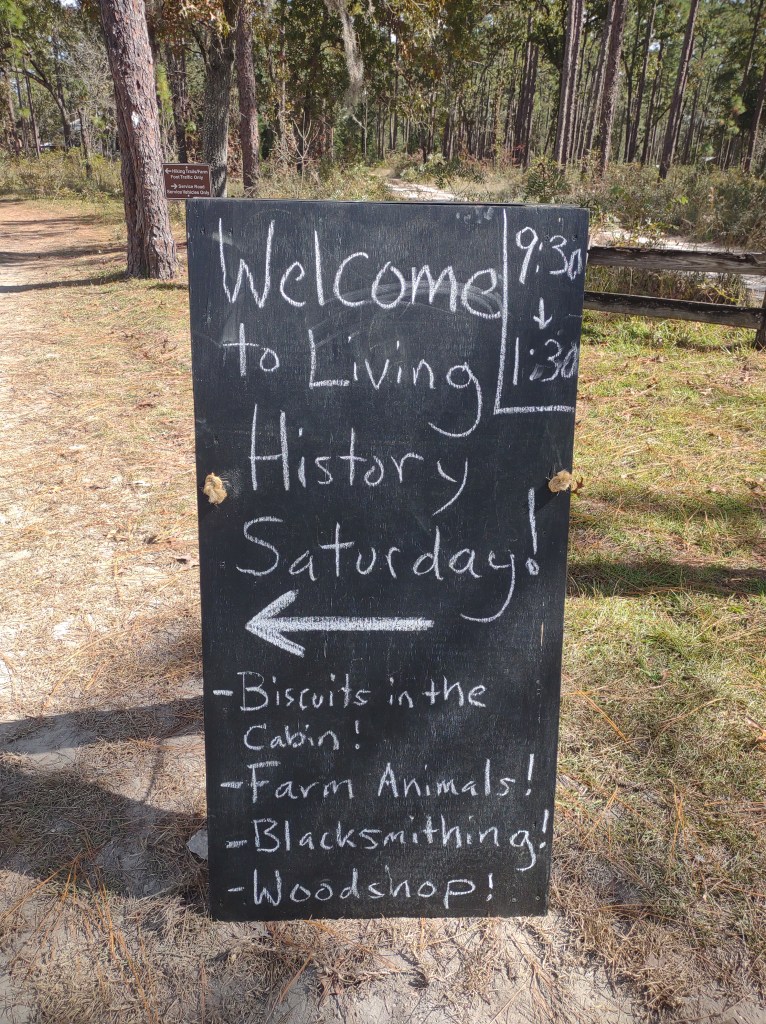 ← Hiking Trails/Farm
Foot Traffic Only
→ Service Road
Service Vehicles Only
Welcome
to Living
History
Saturday!
9:30
↓
1:30
←
- Biscuits in the
Cabin!
- Farm Animals!
- Blacksmithing!
- Woodshop!